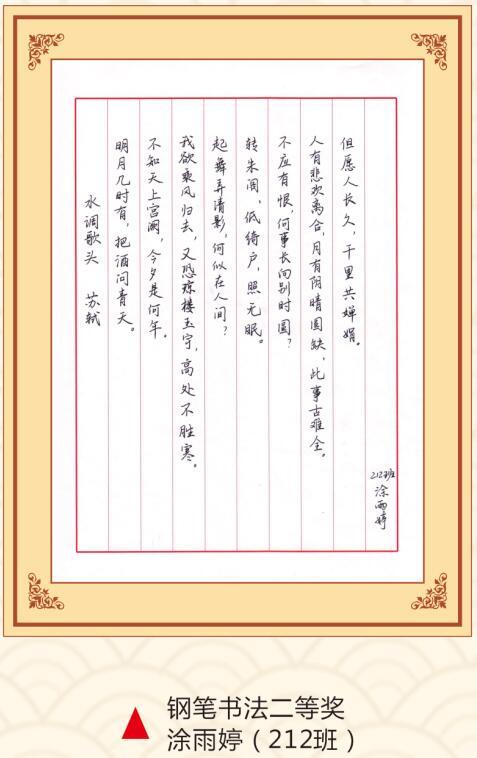 水调歌头 苏轼
明月几时有，把酒问青天。
不知天上宫阙，今夕是何年。
我欲乘风归去，又恐琼楼玉宇，高处不胜寒。
起舞弄清影，何似在人间？
转朱阁，低绮户，照无眠。
不应有恨，何事长向别时圆？
人有悲欢离合，月有阴晴圆缺，此事古难全。
但愿人长久，千里共婵娟。
212班 涂雨婷
钢笔书法二等奖
涂雨婷（212班）